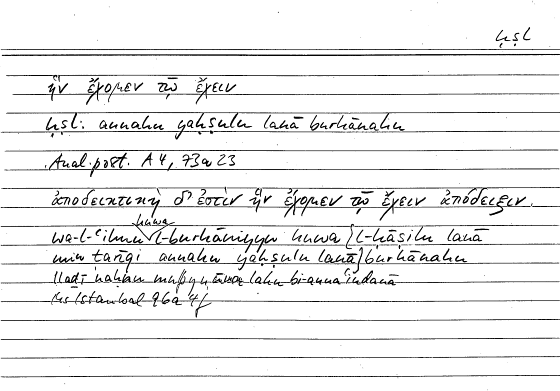 ḥṣl
ἣν ἔχομεν τῷ ἔχειν
ḥṣl: annahu yaḥṣulu lanā burhānahu
Anal. post. A 4, 73a23
ἀποδεικτικὴ δ' ἐστὶν ἣν ἔχομεν τῷ ἔχειν ἀπόδειξιν.
huwa
wa-l-ʿilmu l-burhāniyyu huwa {l-ḥāṣilu lanā
min ṭarīqi annahu yaḥṣulu lanā} burhānahu
lladī naḥnu lahu bi-anna ʿindanā
Hs Istanbul 96a 4f